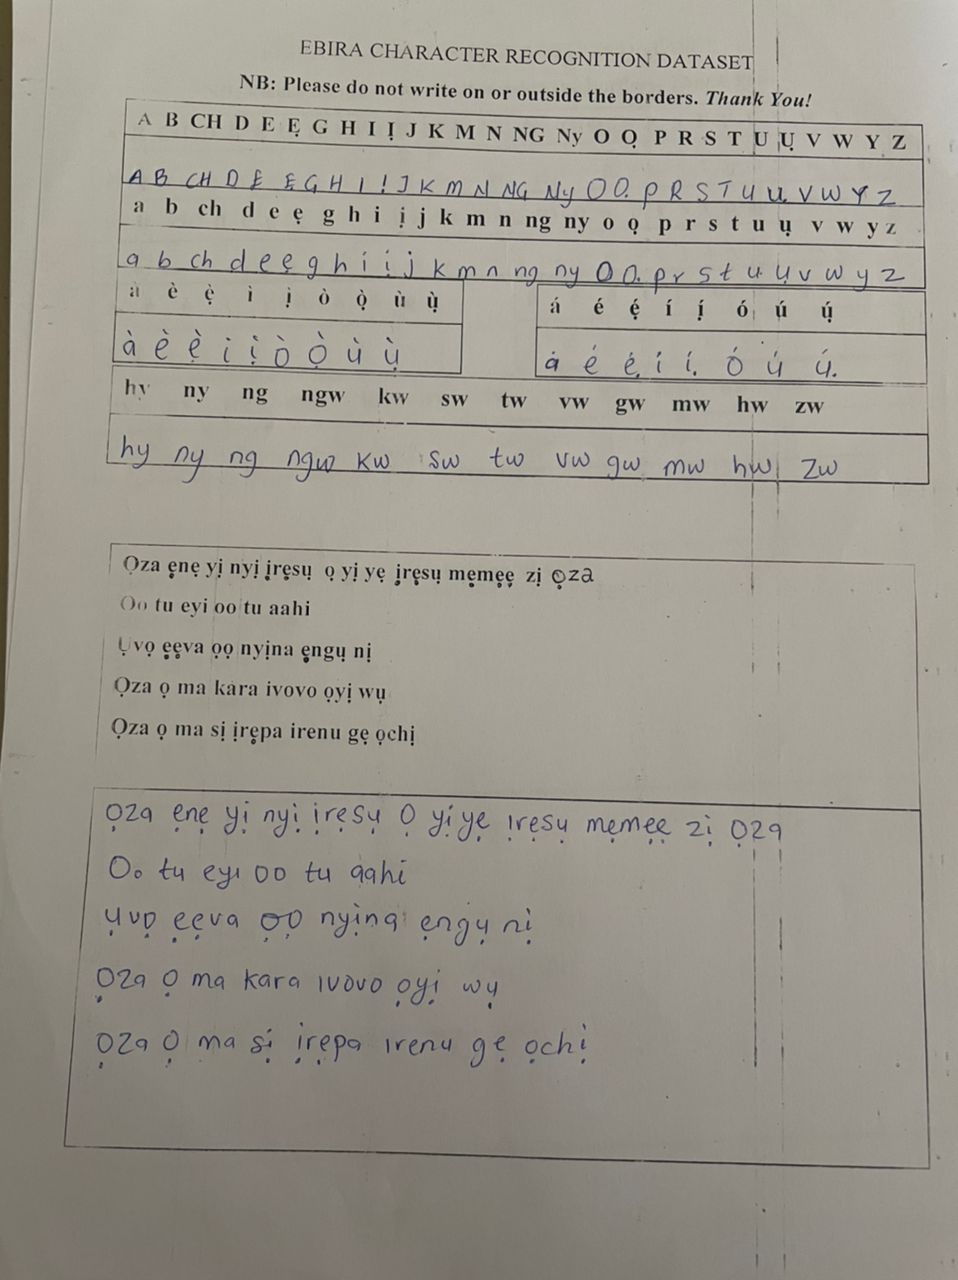 EBIRA CHARACTER RECOGNITION DATASET
NB: Please do not write on or outside the borders. Thank You!
A B CH D E Ẹ G H I Ị J K M N NG Ny O Ọ P R S T U Ụ V W Y Z
A B CH D E Ẹ G H I Ị J K M N NG Ny O Ọ P R S T U Ụ V W Y Z
a b ch d e ẹ g h i ị j k m n ng ny o ọ p r s t u ụ v w y z
a b ch d e ẹ g h i ị j k m n ng ny o ọ p r s t u ụ v w y z
à è ẹ̀ ì ị̀ ò ọ̀ ù ụ̀ á é ẹ́ í ị́ ó ú ụ́
à è ẹ̀ ì ị̀ ò ọ̀ ù ụ̀ á é ẹ́ í ị́ ó ú ụ́
hy ny ng ngw kw sw tw vw gw mw hw zw
hy ny ng ngw kw sw tw vw gw mw hw zw
Ọza ẹnẹ yị nyị ịrẹsụ ọ yị yẹ ịrẹsụ mẹmẹẹ zị ọza
Oo tu eyi oo tu aahi
Ụvọ ẹẹva ọọ nyịna ẹngụ nị
Ọza ọ ma kara ivovo ọyị wụ
Ọza ọ ma sị ịrẹpa irenu gẹ ọchị
Ọza ẹnẹ yị nyị ịrẹsụ Ọ yị yẹ ịrẹsụ mẹmẹẹ zị Ọza
Oo tu eyi oo tu aahi
Ụvọ ẹẹva ọọ nyịna ẹngụ nị
Ọza Ọ ma kara ivovo ọyị wụ
Ọza Ọ ma sị ịrẹpa irenu gẹ ọchị